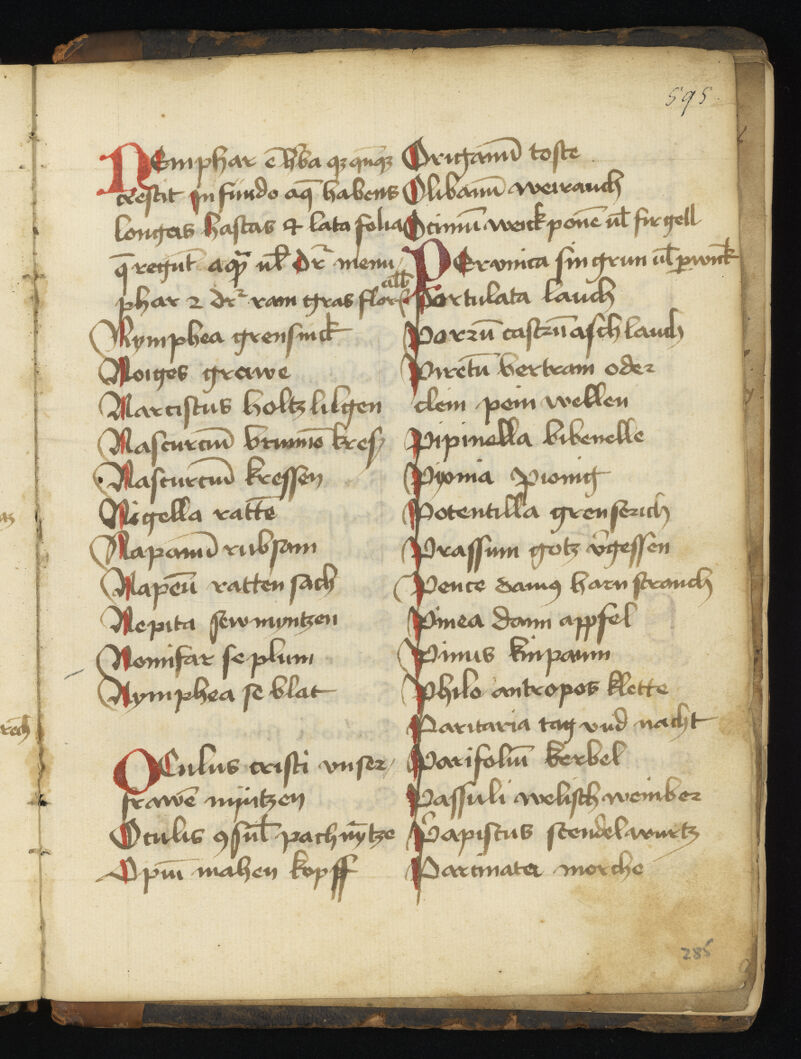 595
Nemphar ē h̄ba qz qnqz
crescit in fundo aq̄ habens
longas hastas & lata folia
q̄ regūt aqua ul̄ dr̄ menu
alb
phar 2 dr̄ ram gras flor
Nymphea grensinck
Noiges grawe
Narcistus holtz lilgen
Nascurciū brunnē kres
Nascurciū kressen
Nigella rattē
Napanū rubsam
Napeū ratten sach
Nepita sew myntzen
Nomifar se plum
Nymphea se blat
Oculus cristi vnser
frawē müntzen
Oculis ꝯsul̄ pachmȳtze
Opiū mahen kopff
Origanū toste
Olibanū weirauch
Ocimū weick ponē ul̄ firgell
Pervinica singrun ul̄ perwinck
Portulata lauch
Porrū castrū asch lauch
Piretū bertram oder
clein pein wellen
Pipinella bibenelle
Piyonia pionig
Potentilla grenserich
Prassium gotz v̄gessen
Pence damꝰ harn strauch
Pinea dann appfel
Pinus kinpaum
Philo antropos klette
Paritaria tag vnd nacht
Parifoliū kerbel
Passuli welisch weinber
Papistus stendelwurtz
Pastinata morche
285